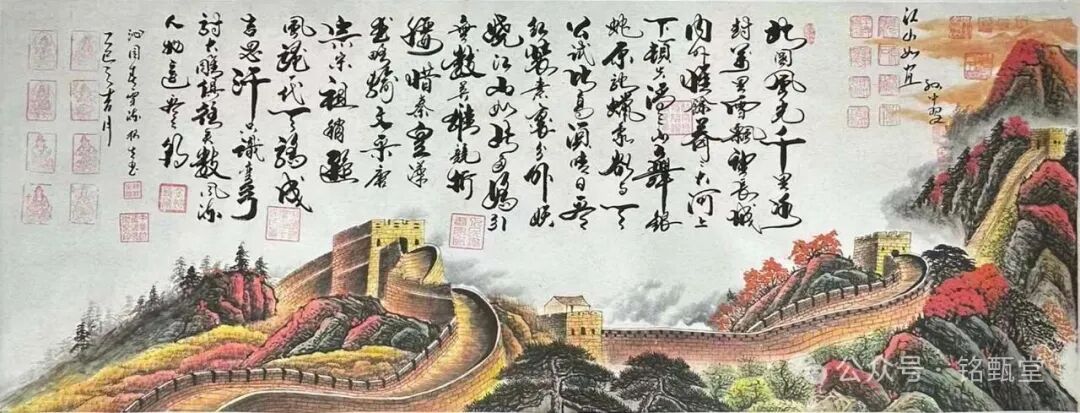 江山如
北国风光千里冰
封万里雪飘望长城
内外惟余莽々大河上
下顿失滔々山舞银
蛇原驰蜡象欲与天
公试比高须晴日看
红装素裹分外妖
娆江山如此多娇引
无数英雄竞折
腰惜秦皇汉
武略输文采唐
宗宋祖稍逊
风骚一代天骄成
吉思汗只识弯弓
射大雕俱往矣数风流
人物还看今朝
沁园春雪
公众号·铭甄堂